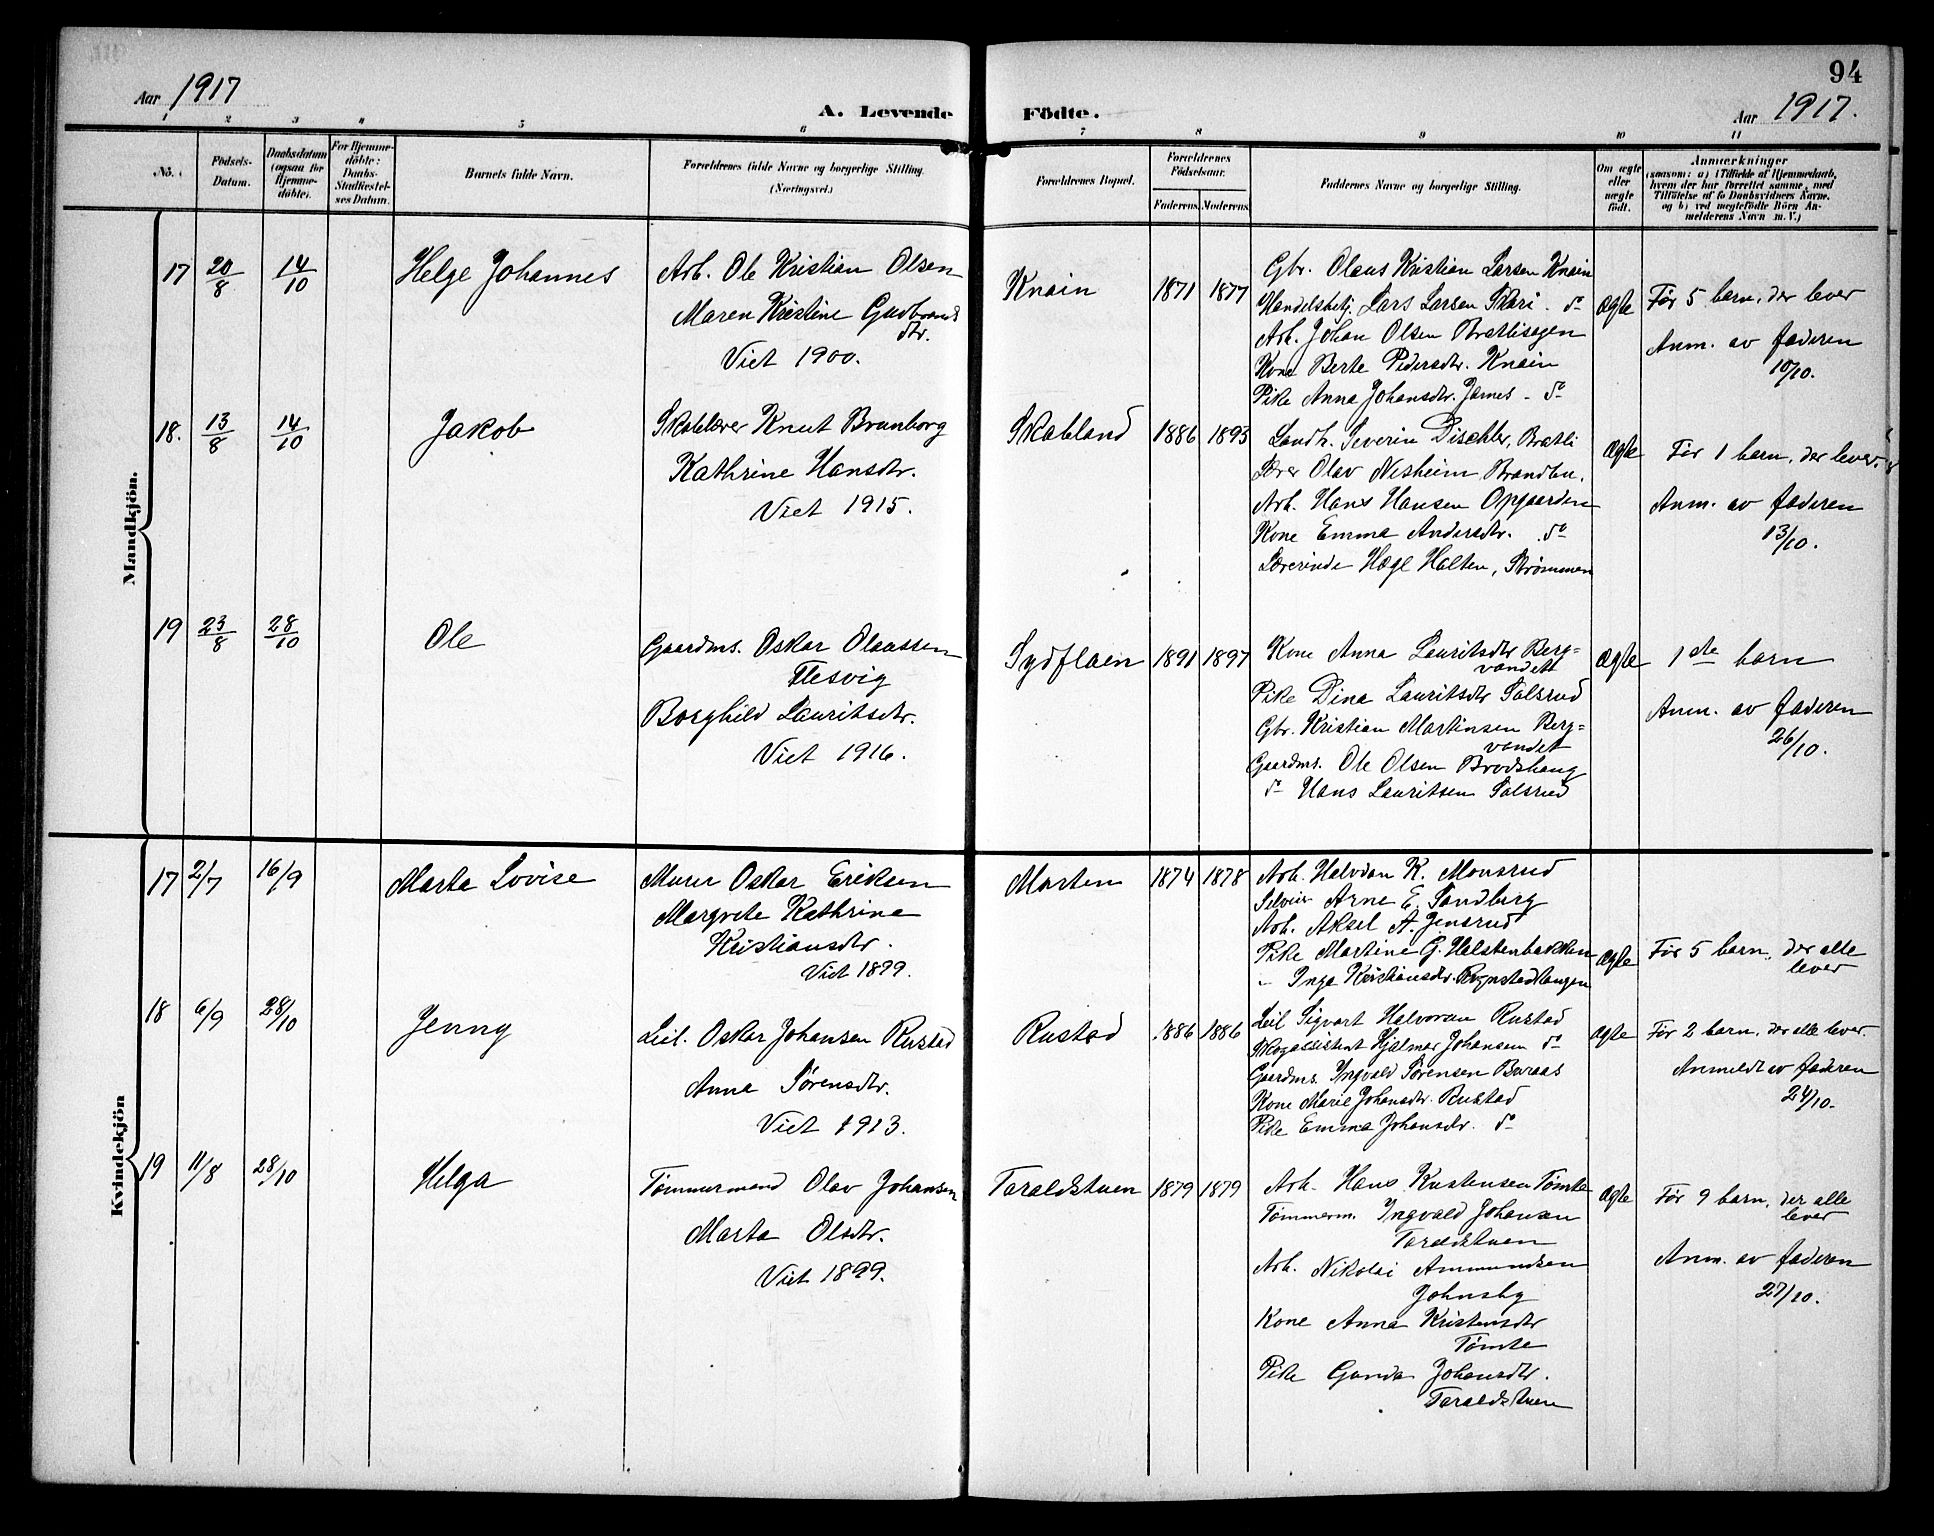 94
Aar 1917
A. Levende Födte.
Aar 1917.
1 2 3 4 5 6 7 8 9 10 11
No.
Födsels-
Datum.
Daabsdatum
(ogsaa for
Hjemme-
döbte).
For Hjemme-
döbte:
Daabs-
Stadfæstel-
ses Datum.
Barnets fulde Navn.
Forældrenes fulde Navne og borgerlige Stilling.
(Næringsvei.)
Forældrenes Bopæl.
Forældrenes
Födselsaar.
Faderens. Moderens.
Faddernes Navne og borgerlige Stilling.
Om ægte
eller
uægte
födt.
Anmærkninger
(saasom: a) i Tilfælde af Hjemmedaab,
hvem der har forrettet samme, med
Tilföielse af to Daabsvidners Navne,
og b) ved uægtefödte Börn An-
melderens Navn m. V.)
Mandkjön.
17 20/8 14/10 Helge Johannes
Arb. Ole Kristian Olsen
Maren Kristine Gudbrands
dtr.
Viet 1900.
Knain 1871 1877
Gbr. Olaus Kristian Larsen Knain
Handelsbetj. Lars Larsen Skari. do
Arb. Johan Olsen Brætlisagen
Kone Berte Pedersdtr. Knain
Pike Anna Johansdtr. James - do
Ægte
Før 5 barn, der lever
Anm. av faderen
10/10.
18. 13/8 14/10 Jakob
Skolelærer Knut Brunborg
Kathrine Hansdtr.
Viet 1915.
Skobland 1886 1893
Landh. Severin Dischler, Brætli
Lærer Olav Nesheim Brandbu.
Arb. Hans Hansen Opgaarden
Kone Emma Andersdtr. do
Lærerinde Hægl Halten, Strømmen
Ægte
Før 1 barn, der lever.
Anm. av faderen
13/10.
19 23/8 28/10 Ole
Gaardms. Oskar Olaussen
Flesvig
Borghild Lauritsdtr.
Viet 1916.
Sydflaen 1891 1897
Kone Anna Lauritsdtr Berg=
vandet
Pike Dina Lauritsdtr Solsrud
Gbr. Kristian Martinsen Berg=
vandet
Gaardms. Ole Olsen Brodshaug
do Hans Lauritsen Solsrud
Ægte
1ste barn
Anm. av faderen
26/10.
Kvindekjön
17 2/7 16/9 Marta Lovise
Murer Oskar Eriksen
Margrete Kathrine
Kristiansdtr.
Viet 1899.
Morten 1874 1878
Arb. Halvdan K. Monsrud
Arne E. Sandberg
Arb. Aksel A. Jensrud
Pike Martine G. Holstenbakken
- Inga Kristiansdtr. Rognstadtangen
Ægte
Før 5 barn, der alle
lever
18 6/9 28/10 Jenny
Leil. Oskar Johansen Rustad
Anna Sørensdtr.
Viet 1913.
Rustad 1886 1886
Leil Sigvart Halvorsen Rustad
Skogassistent Hjalmar Johansen do
Gaardms. Ingvald Sørensen Buraas
Kone Marie Johansdtr. Rustad
Pike Emma Johansdtr. do
Ægte
Før 2 barn, der alle lever
Anmeldt av faderen
24/10.
19 11/8 28/10 Helga
Tømmermand Olav Johansen
Marta Olsdtr.
Viet 1899.
Taraldstuen 1879 1879
Arb. Hans Kristensen Tømte
Tømmerm. Ingvald Johansen
Taraldstuen
Arb. Nikolai Ammundsen
Johnsby
Kone Anna Kristensdtr
Tømte
Pike Gunda Johansdtr.
Taraldstuen
Ægte
Før 9 barn, der alle
lever
Anm. av faderen
27/10.